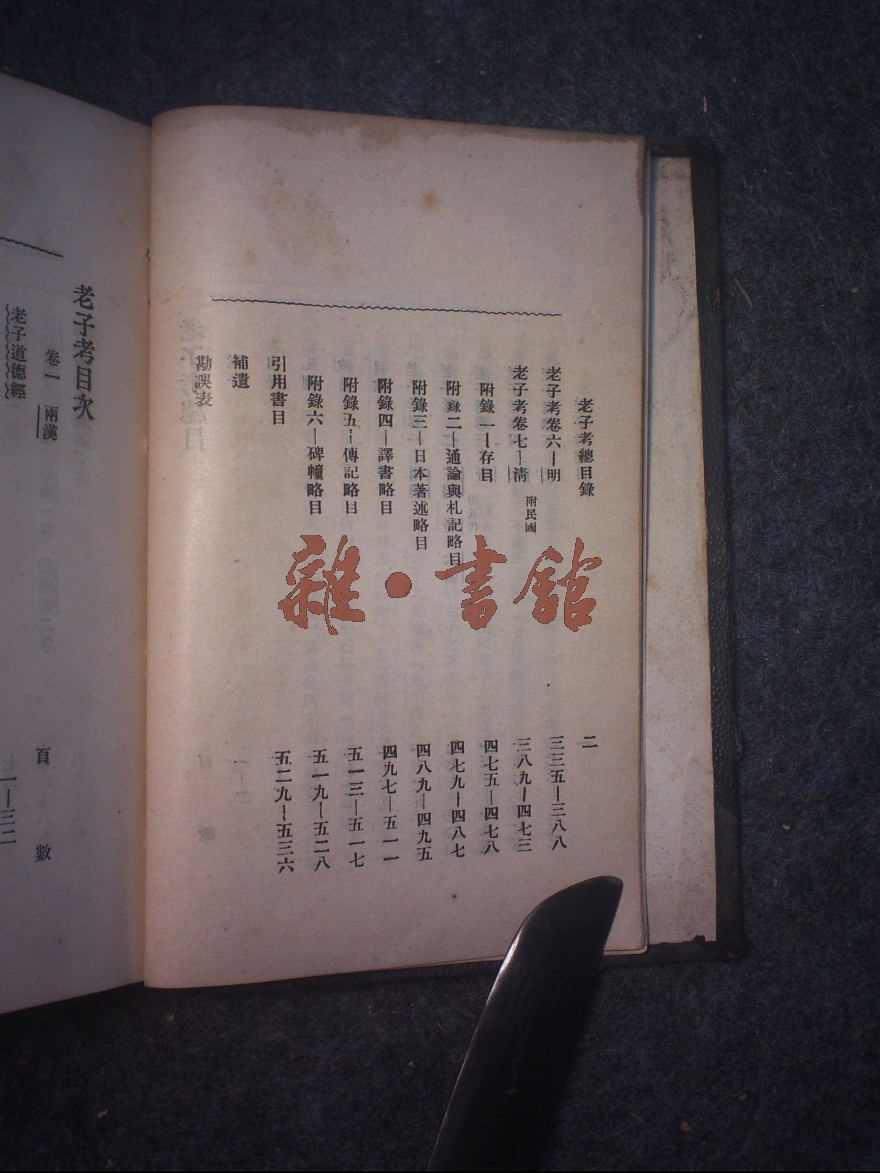 老子考總目錄 二
老子考卷六—明 三三五—三八八
老子考卷七—清 附民國 三八九—四七三
附錄一—存目 四七五—四七八
附錄二—通論與札記略目 四七九—四八七
附錄三—日本著述略目 四八九—四九五
附錄四—譯書略目 四九七—五一一
附錄五—傳記略目 五一三—五一七
附錄六—碑幢略目 五一九—五二八
引用書目 五二九—五三六
補遺
勘誤表
老子考目次
卷一 兩漢 頁數
老子道德經 一—三二
雜·書館